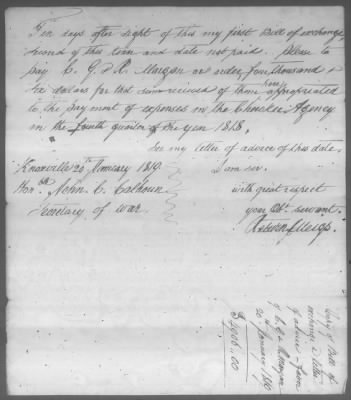 Ten days after sight of this my first Bill of exchange
second of this tenor and date not paid. Please to
pay C. G. & R. Morgan or order four thousand &
six dollars for this sum received of them here appropriated
to the payment of expenses in the Cherokee Agency
in the fourth quarter of the year 1818.
See my letter of advice of this date.
I am sir
Knoxville 20th January 1819.
Honble John C. Calhoun
Secretary of War
with great respect
your Obt. servant.
Return J. Meigs
Copy of Bill of
exchange & letter
of advice in favor
of C. G. & R. Morgan
20th January 1819